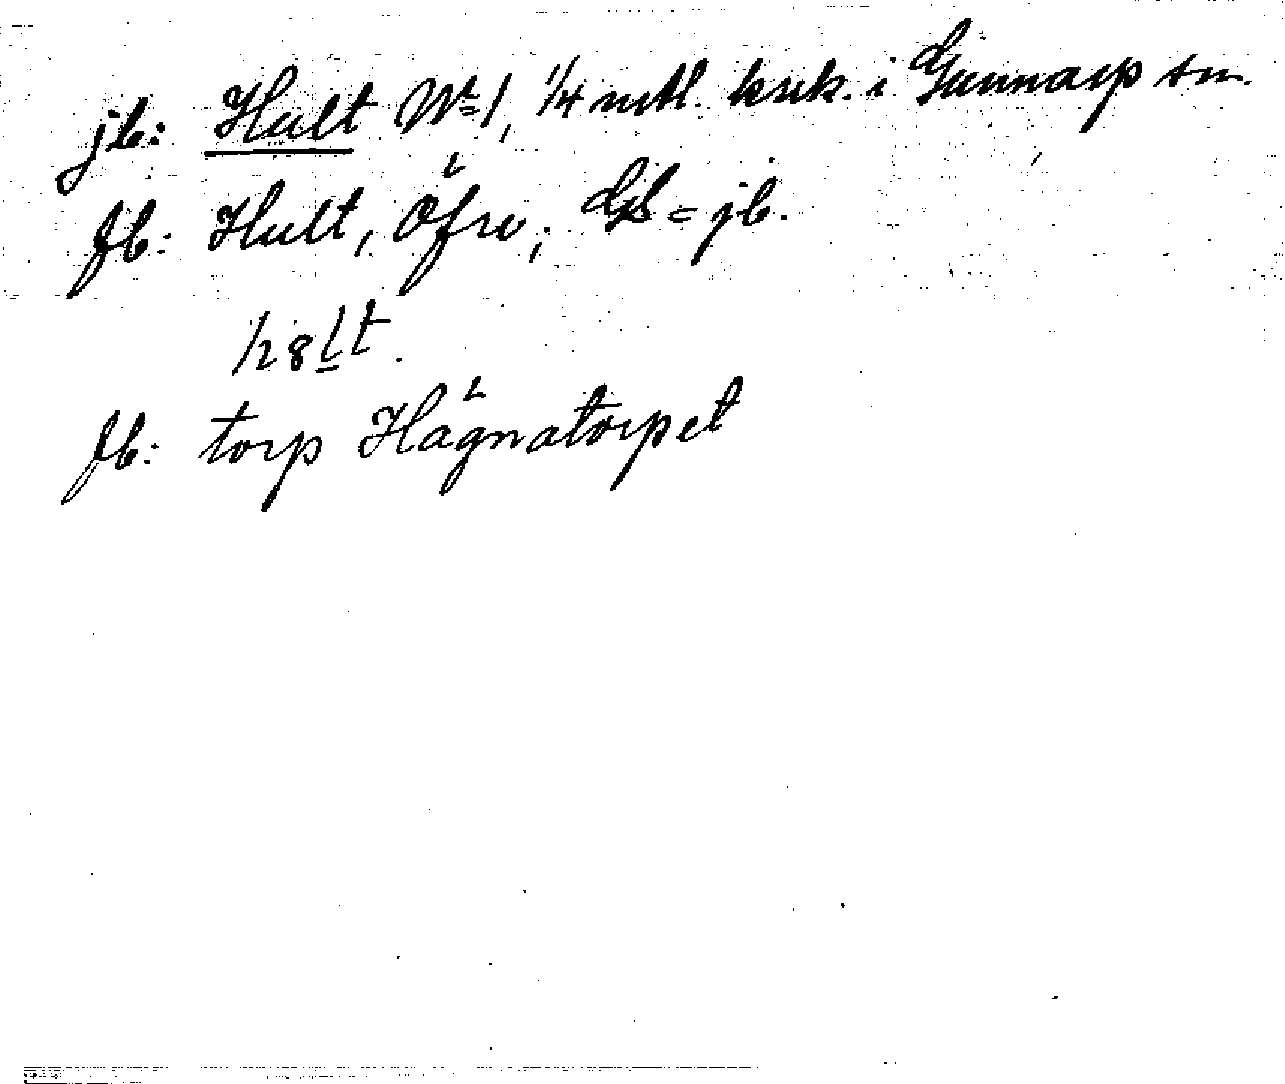 jb: Hult Nº 1, 1/4 mtl. krsk. i Gunnarp sn.
fb: Hult, Öfre; GS = jb.
h8lt.
fb: torp Hägnatorpet